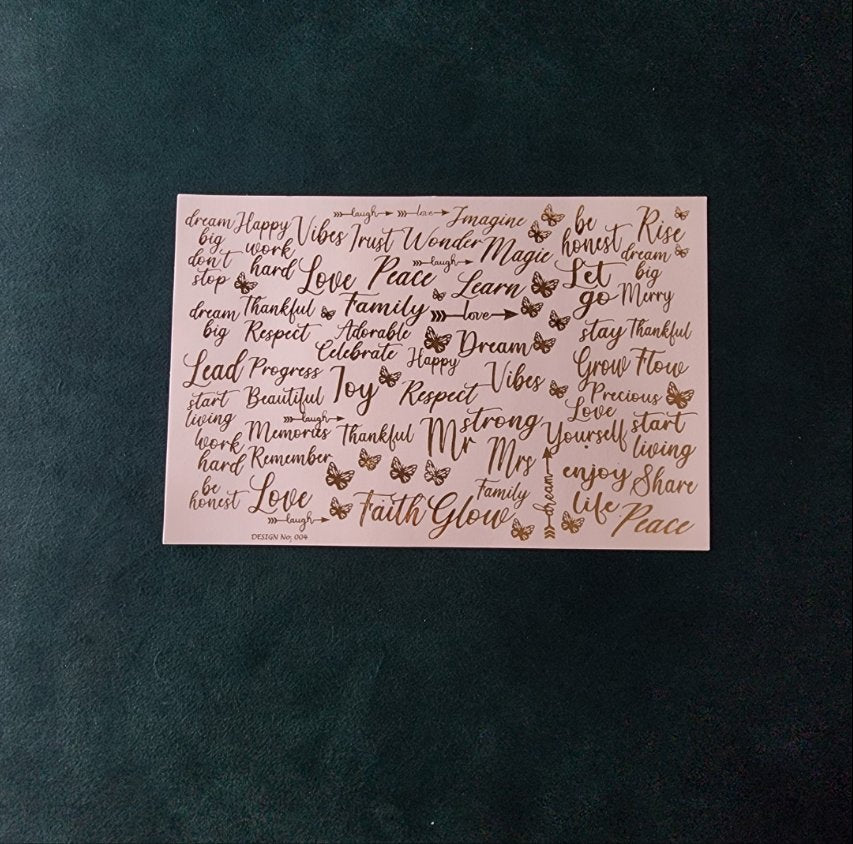 laugh love Imagine
dream big Happy Vibes Trust Wonder Magic be honest Rise
don't stop work hard Love Peace laugh Learn Let go dream big Merry
dream big Thankful Family love
Respect Adorable Dream stay Thankful
Celebrate Happy
Lead Progress Joy Respect Vibes Grow Flow
start living Beautiful Precious
laugh Love Yourself start living
work hard Memories Thankful Mr strong
Remember Mrs enjoy life Share
be honest Love Family dream
laugh Faith Glow Peace
DESIGN No; 004